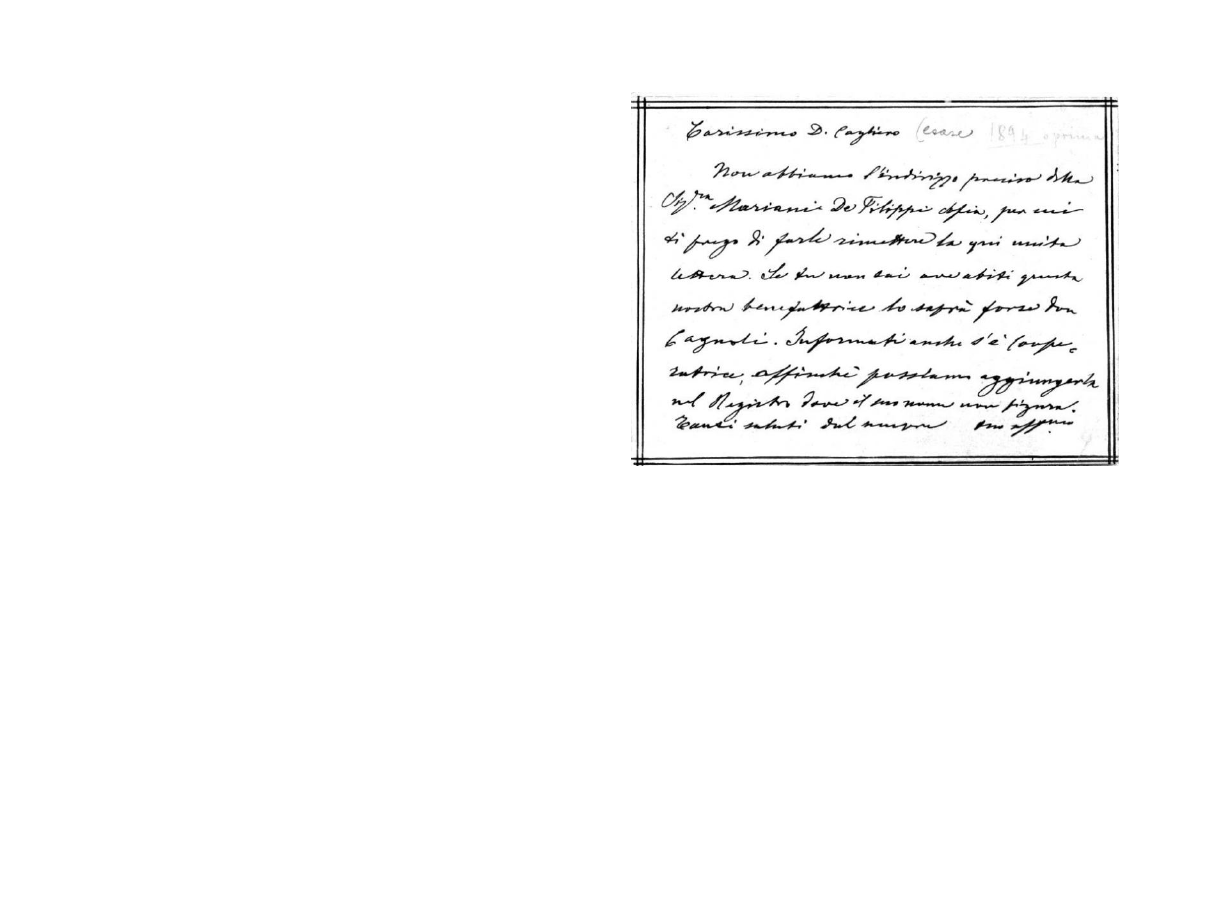 Carissimo D. Cagliero (Cesare 1894 o prima
Non abbiamo l'indirizzo preciso della
Sig.ra Mariani De Filippi Sofia, per cui
ti prego di farle rimettere la qui unita
lettera. Se tu non sai ove abiti questa
nostra benefattrice lo saprà forse don
Cagnoli. Informati anche s'è Coope-
ratrice, affinchè possiamo aggiungerla
nel Registro dove il suo nome non figura.
Tanti saluti dal sempre tuo aff.mo